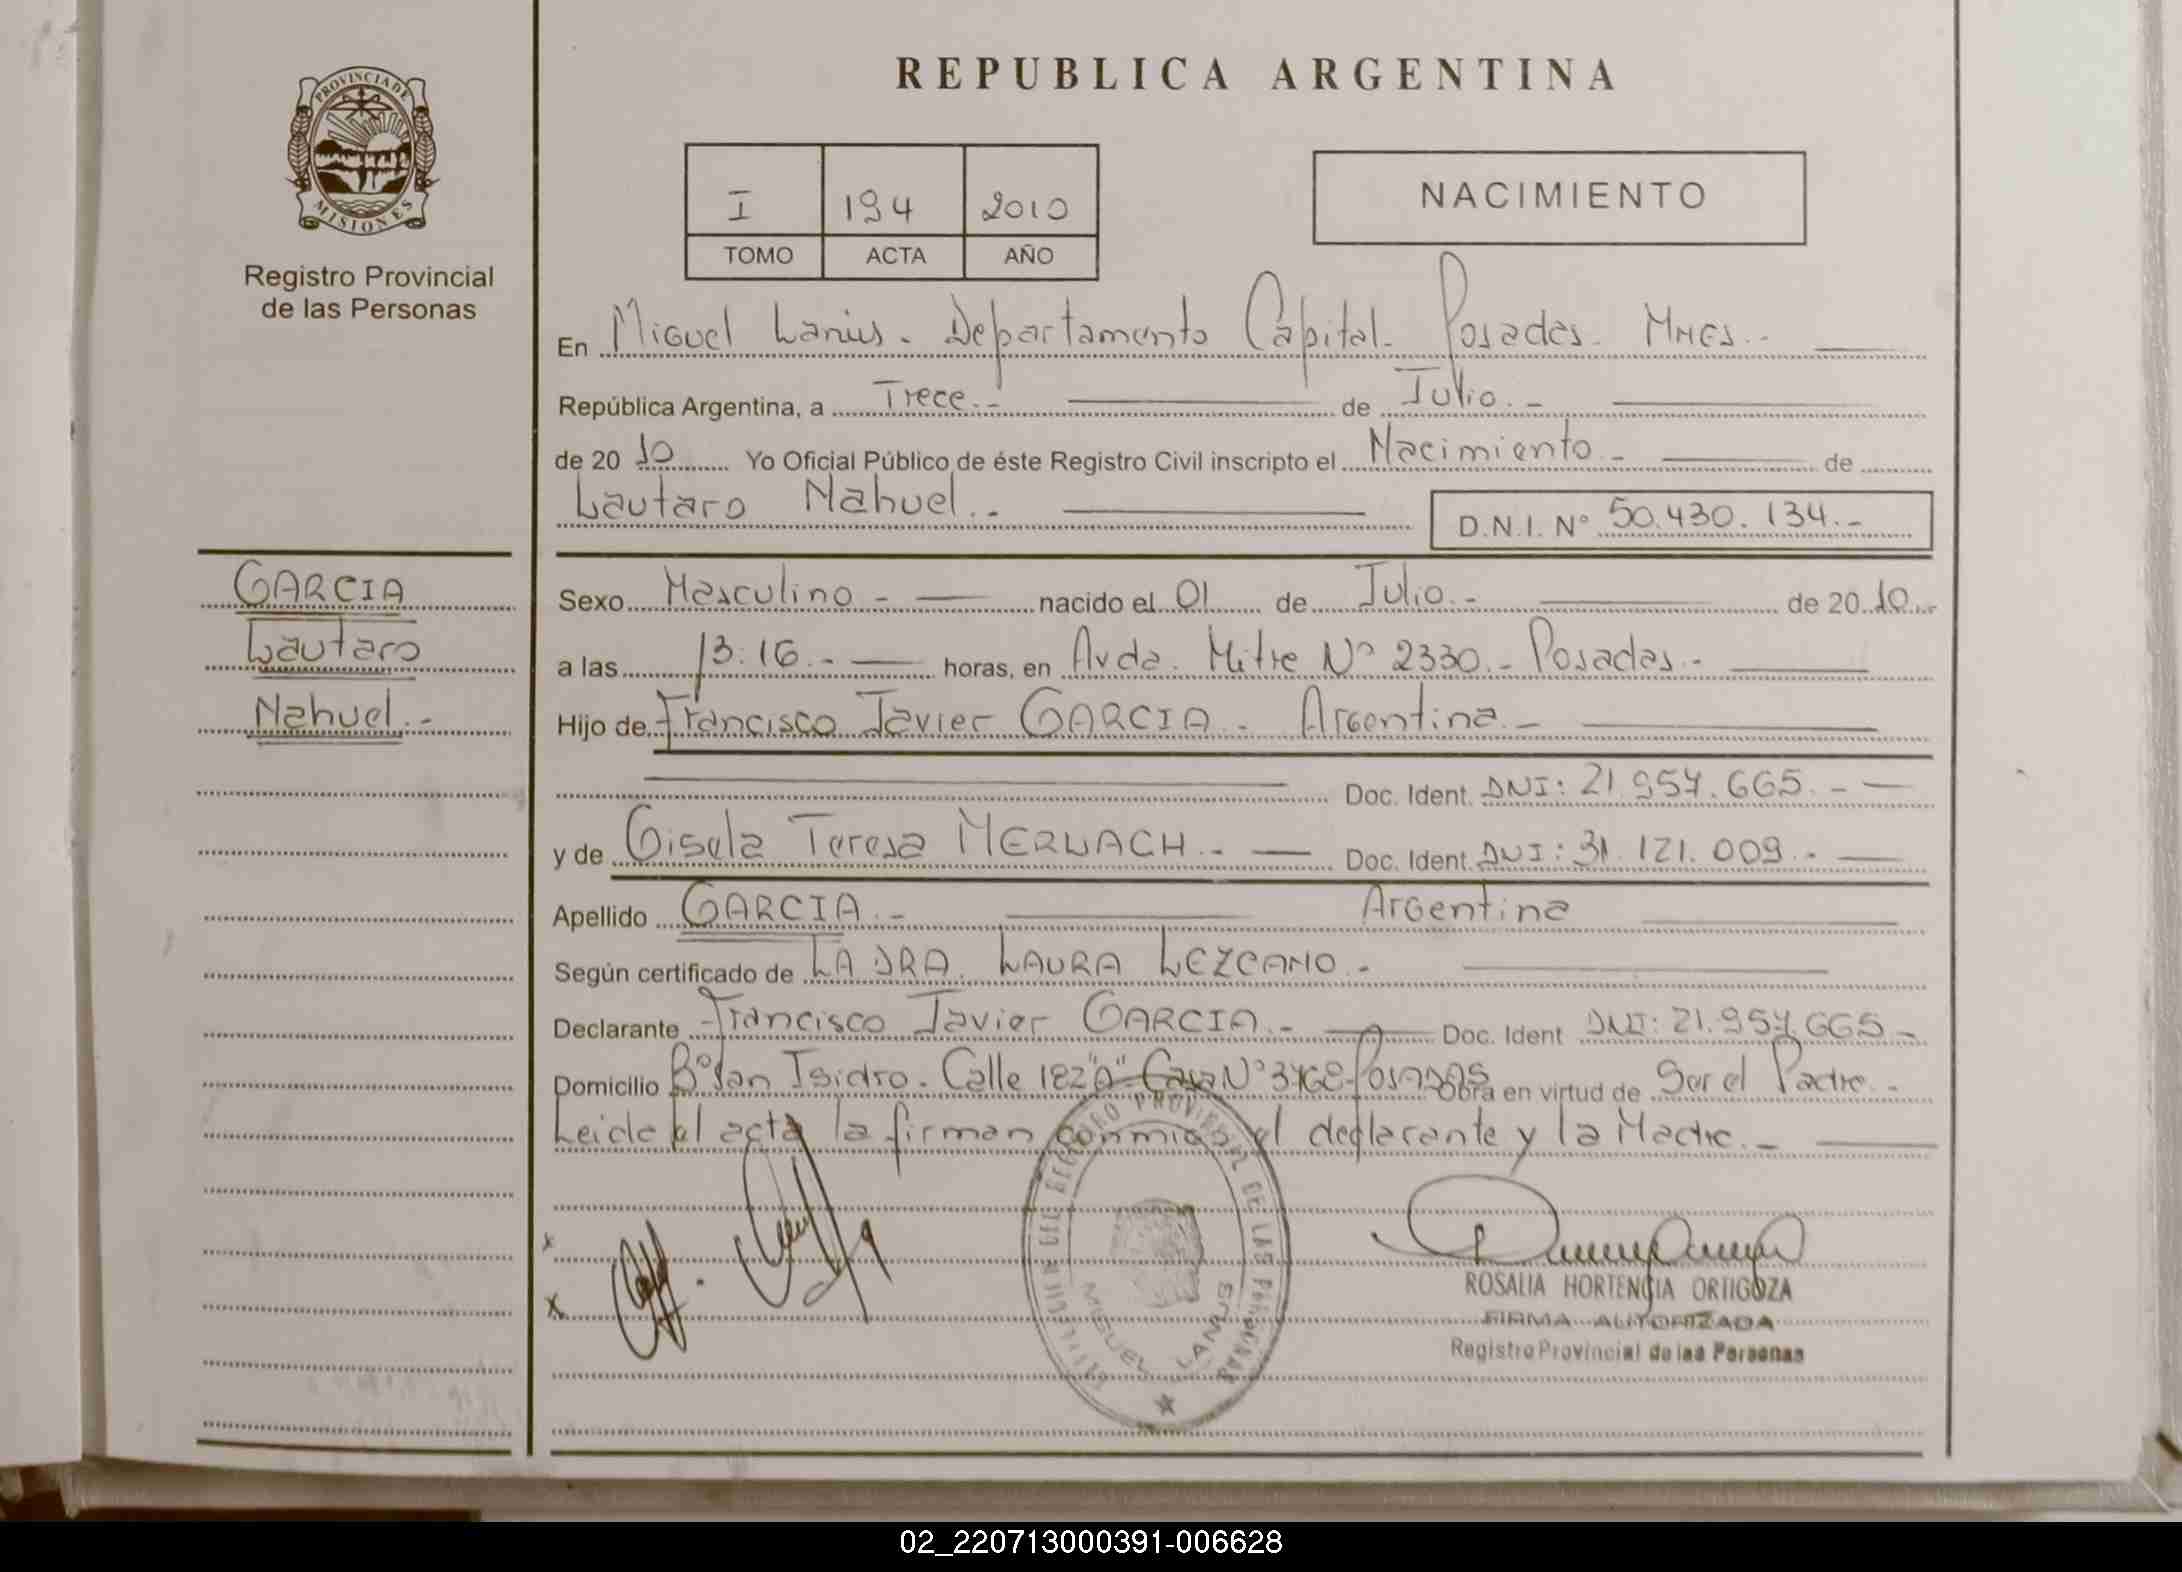 REPUBLICA ARGENTINA
PROVINCIA DE
MISIONES
Registro Provincial
de las Personas
I 194 2010
TOMO ACTA AÑO
NACIMIENTO
En Miguel Lanús. Departamento Capital. Posadas. Mnes.-
República Argentina, a Trece.- de Julio.-
de 2010 Yo Oficial Público de éste Registro Civil inscripto el Nacimiento.- de
Lautaro Nahuel.-
D.N.I. Nº 50.430.134.-
GARCIA
Lautaro
Nahuel.-
Sexo Masculino - nacido el 01 de Julio.- de 2010
a las 13:16.- horas, en Avda. Mitre Nº 2330.- Posadas.-
Hijo de Francisco Javier GARCIA - Argentina.-
Doc. Ident. DNI: 21.957.665.-
y de Gisela Teresa MERLACH.- Doc. Ident. DNI: 31.121.009.-
Apellido GARCIA.- Argentina
Según certificado de LA DRA. LAURA LEZCANO.-
Declarante Francisco Javier GARCIA.- Doc. Ident DNI: 21.957.665-
Domicilio Bº San Isidro. Calle 182"A" Casa Nº 3468-POSADAS Obra en virtud de Ser el Padre.-
Leida el acta la firman conmigo el declarante y la Madre.-
x
x
REGISTRO PROVINCIAL DE LAS PERSONAS
MIGUEL LANUS
ROSALIA HORTENCIA ORTIGOZA
FIRMA AUTORIZADA
Registro Provincial de las Personas
02_220713000391-006628